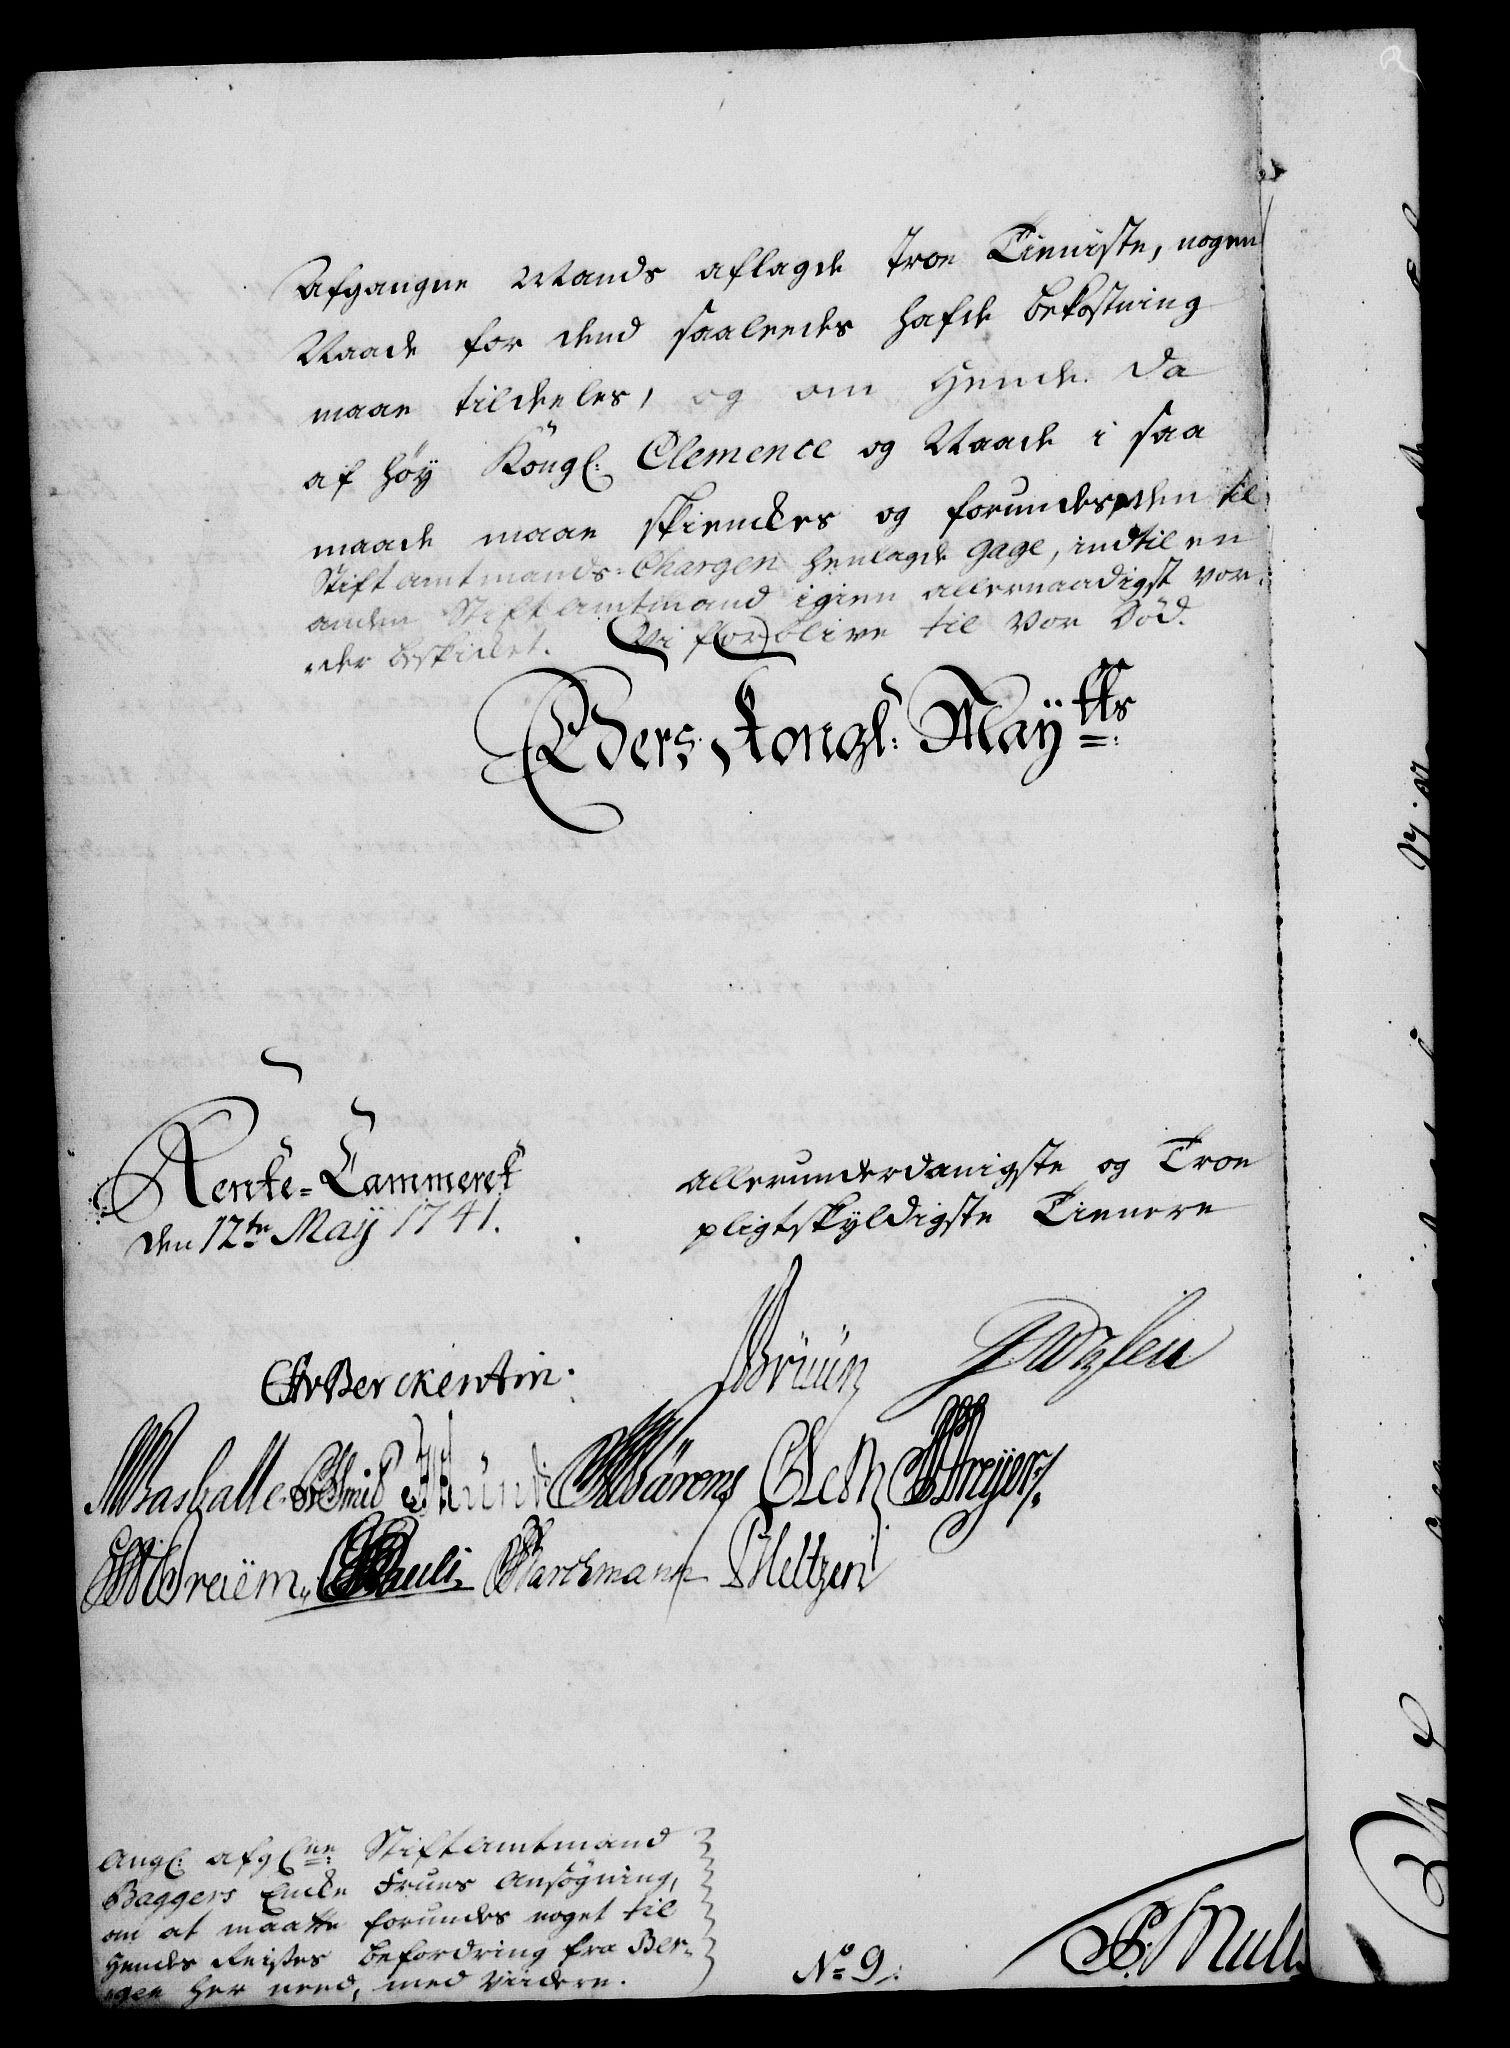 Afgangne Mands aflagde Troe Tieniste, nogen
Naade for dend saaleedes hafde bekostning
maae tildeeles, og om Hende da
af höy Kongl: Clemence og Naade i saa
maade maae skienckes og forundes, den til
Stiftamtmands-Chargen henlagde Gage, indtil en
anden Stiftamtmand igien allernaadigst vor-
der beskicket. Vi forblive til vor Död.
Eders Kongl: Mayts:
Rente-Cammeret
den 12te May 1741.
allerunderdanigste og Troe
pligtskyldigste Tienere
CA v Berckentin.
Brüün
Basballe Smid Mund Bärens Eleth Dreyer
Dreiem Pauli Barchmann Meltzen
Ang: afgl:ne Stiftamtmand
Baggers Encke Frues Ansögning,
om at maatte forundes noget til
Hendes Reises befordring fra Ber-
gen her need, med Viidere.
No 9